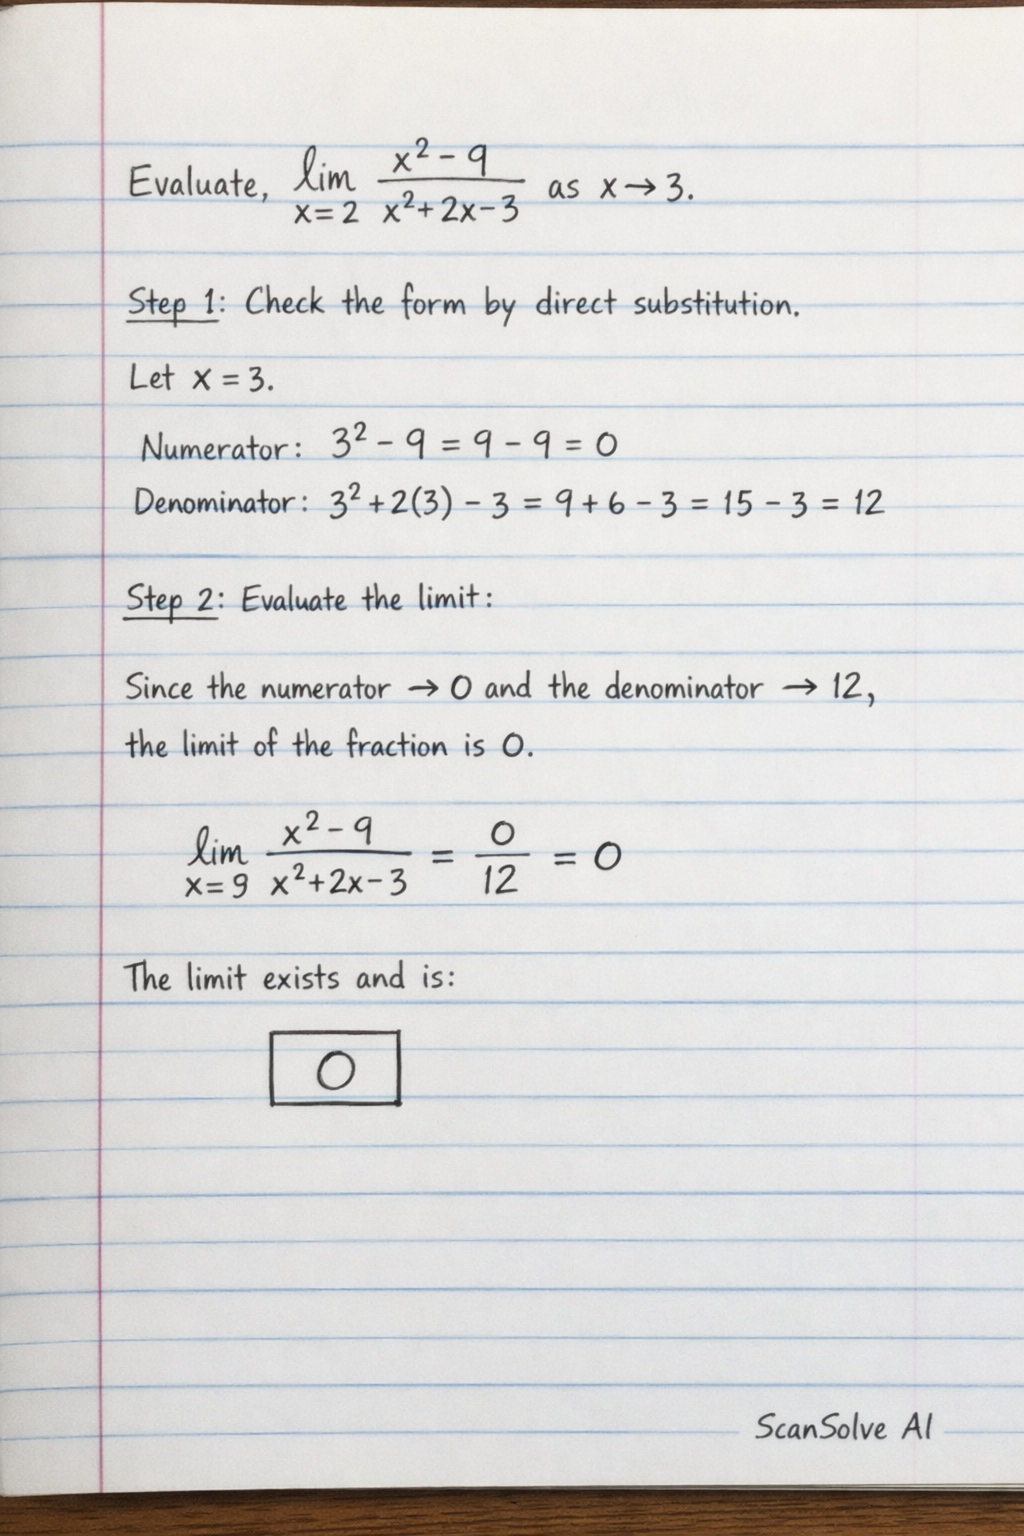 Evaluate, lim x=2 (x² - 9)/(x² + 2x - 3) as x → 3.
Step 1: Check the form by direct substitution.
Let x = 3.
Numerator: 3² - 9 = 9 - 9 = 0
Denominator: 3² + 2(3) - 3 = 9 + 6 - 3 = 15 - 3 = 12
Step 2: Evaluate the limit:
Since the numerator → 0 and the denominator → 12,
the limit of the fraction is 0.
lim x=9 (x² - 9)/(x² + 2x - 3) = 0/12 = 0
The limit exists and is:
0
ScanSolve AI